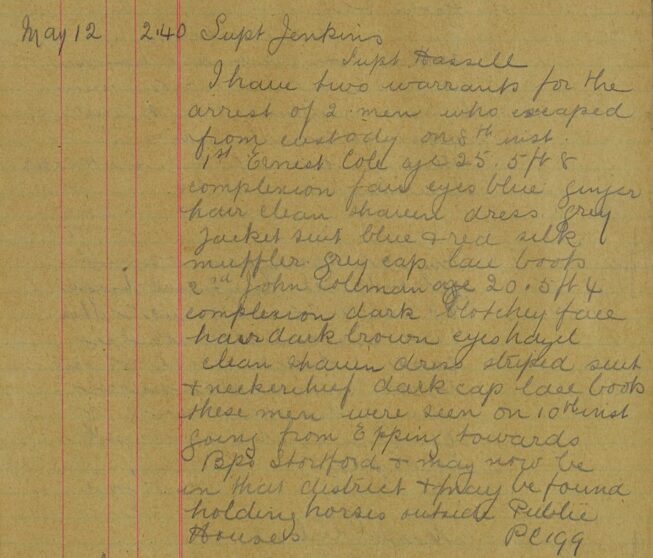 May 12 2.40 Supt Jenkins
Supt Hassell
I have two warrants for the
arrest of 2 men who escaped
from custody on 8th inst.
1st Ernest Cole age 25. 5ft 8
complexion fair eyes blue ginger
hair clean shaven dress grey
Jacket suit blue & red silk
muffler grey cap lace boots
2nd John Coleman age 20. 5ft 4
complexion dark blotchey face
hair dark brown eyes hazel
clean shaven dress striped suit
& neckerchief dark cap lace boots
these men were seen on 10th inst
going from Epping towards
Bps Stortford & may now be
in that district & may be found
holding horses outside Public
Houses PC199